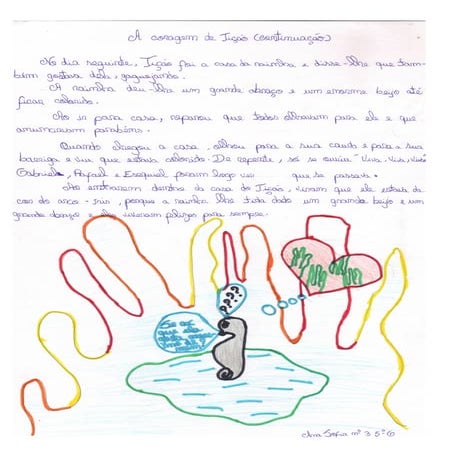 A coragem de Tição (continuação)
No dia seguinte, Tição foi a casa da rainha e disse-lhe que tam-
bém gostava dela, gaguejando.
A rainha deu-lhe um grande abraço e um enorme beijo até
ficar colorido.
Ao ir para casa, reparou que todos olhavam para ele e que
anunciavam parabéns.
Quando chegou a casa, olhou para a sua cauda e para a sua
barriga e viu que estava colorido. De repente, só se ouviu: Viva, viva, viva
Gabriel, Rafael e Ezequiel foram logo ver que se passava.
Ao entrarem dentro da casa de Tição, viram que ele estava da
cor do arco-íris, porque a rainha lhe tinha dado um grande beijo e um
grande abraço e eles viveram felizes para sempre.
Ana Sofia nº3 5º6